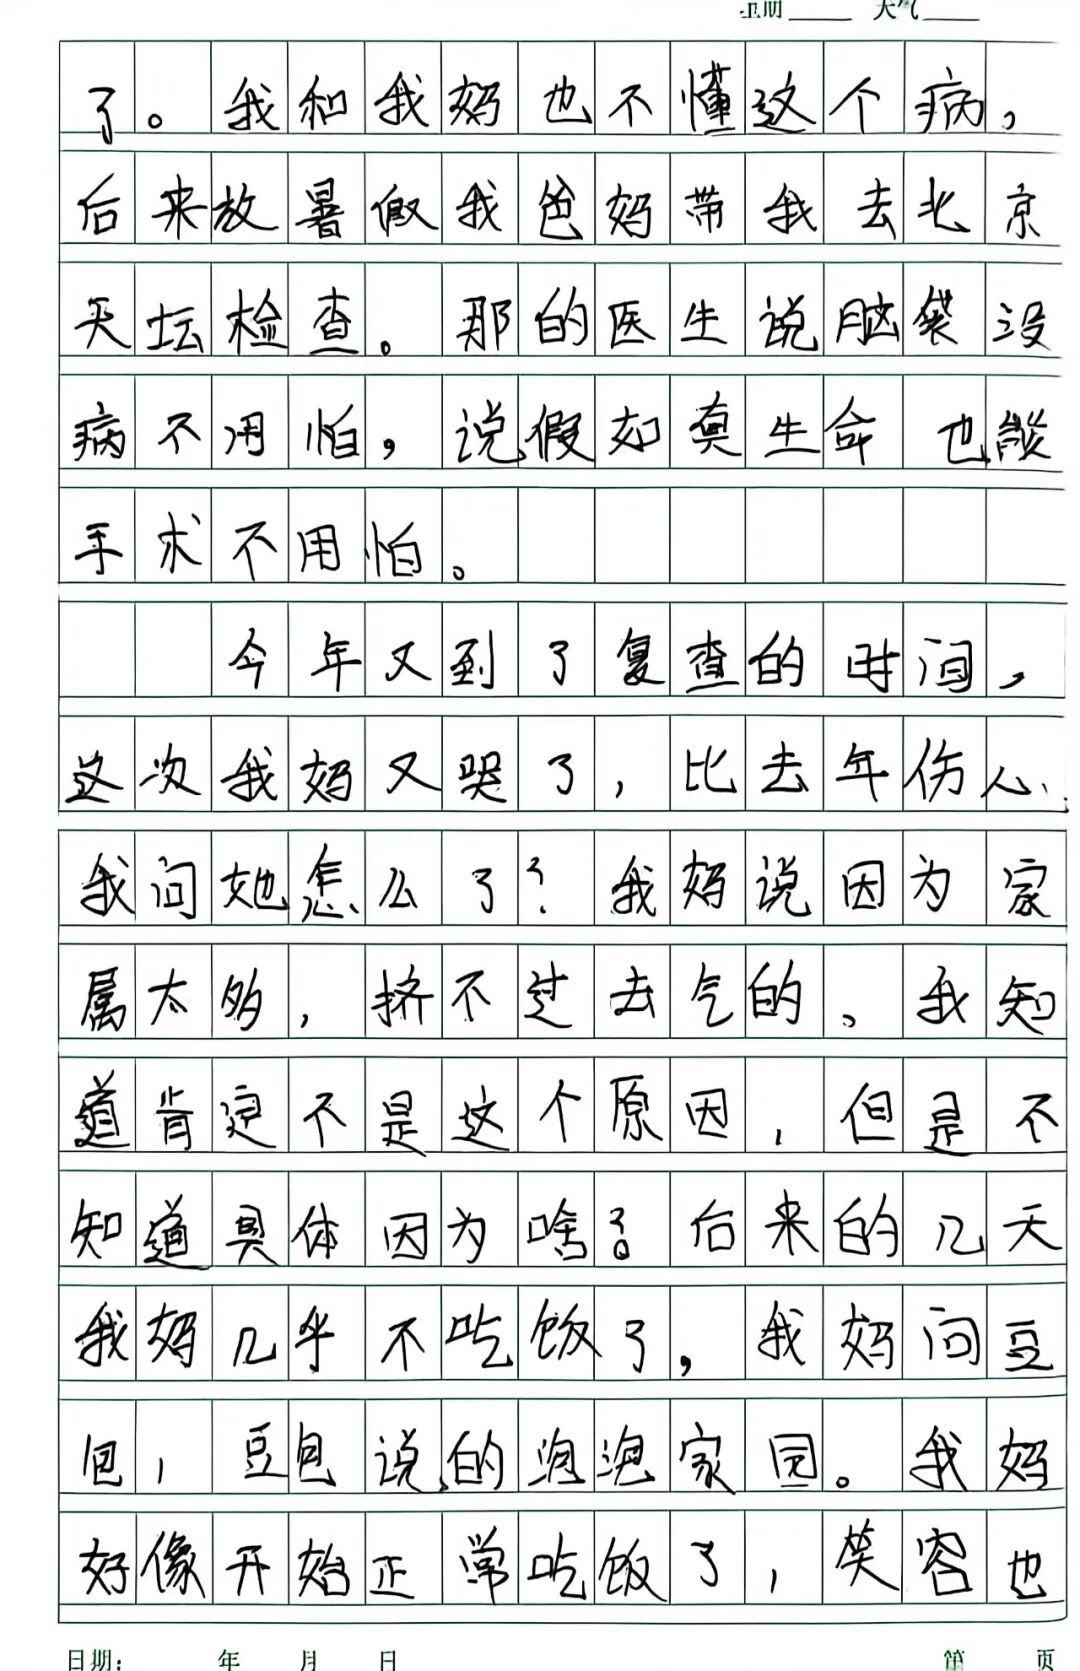 星期 天气
了。我和我妈也不懂这个病，
后来放暑假我爸妈带我去北京
天坛检查。那的医生说脑袋没
病不用怕，说假如真生命也能
手术不用怕。
今年又到了复查的时间，
这次我妈又哭了，比去年伤心、
我问她怎么了？我妈说因为家
属太多，挤不过去气的。我知
道肯定不是这个原因，但是不
知道具体因为啥？后来的几天
我妈几乎不吃饭了，我妈问豆
包，豆包说的泡泡家园。我妈
好像开始正常吃饭了，笑容也
日期： 年 月 日 第 页